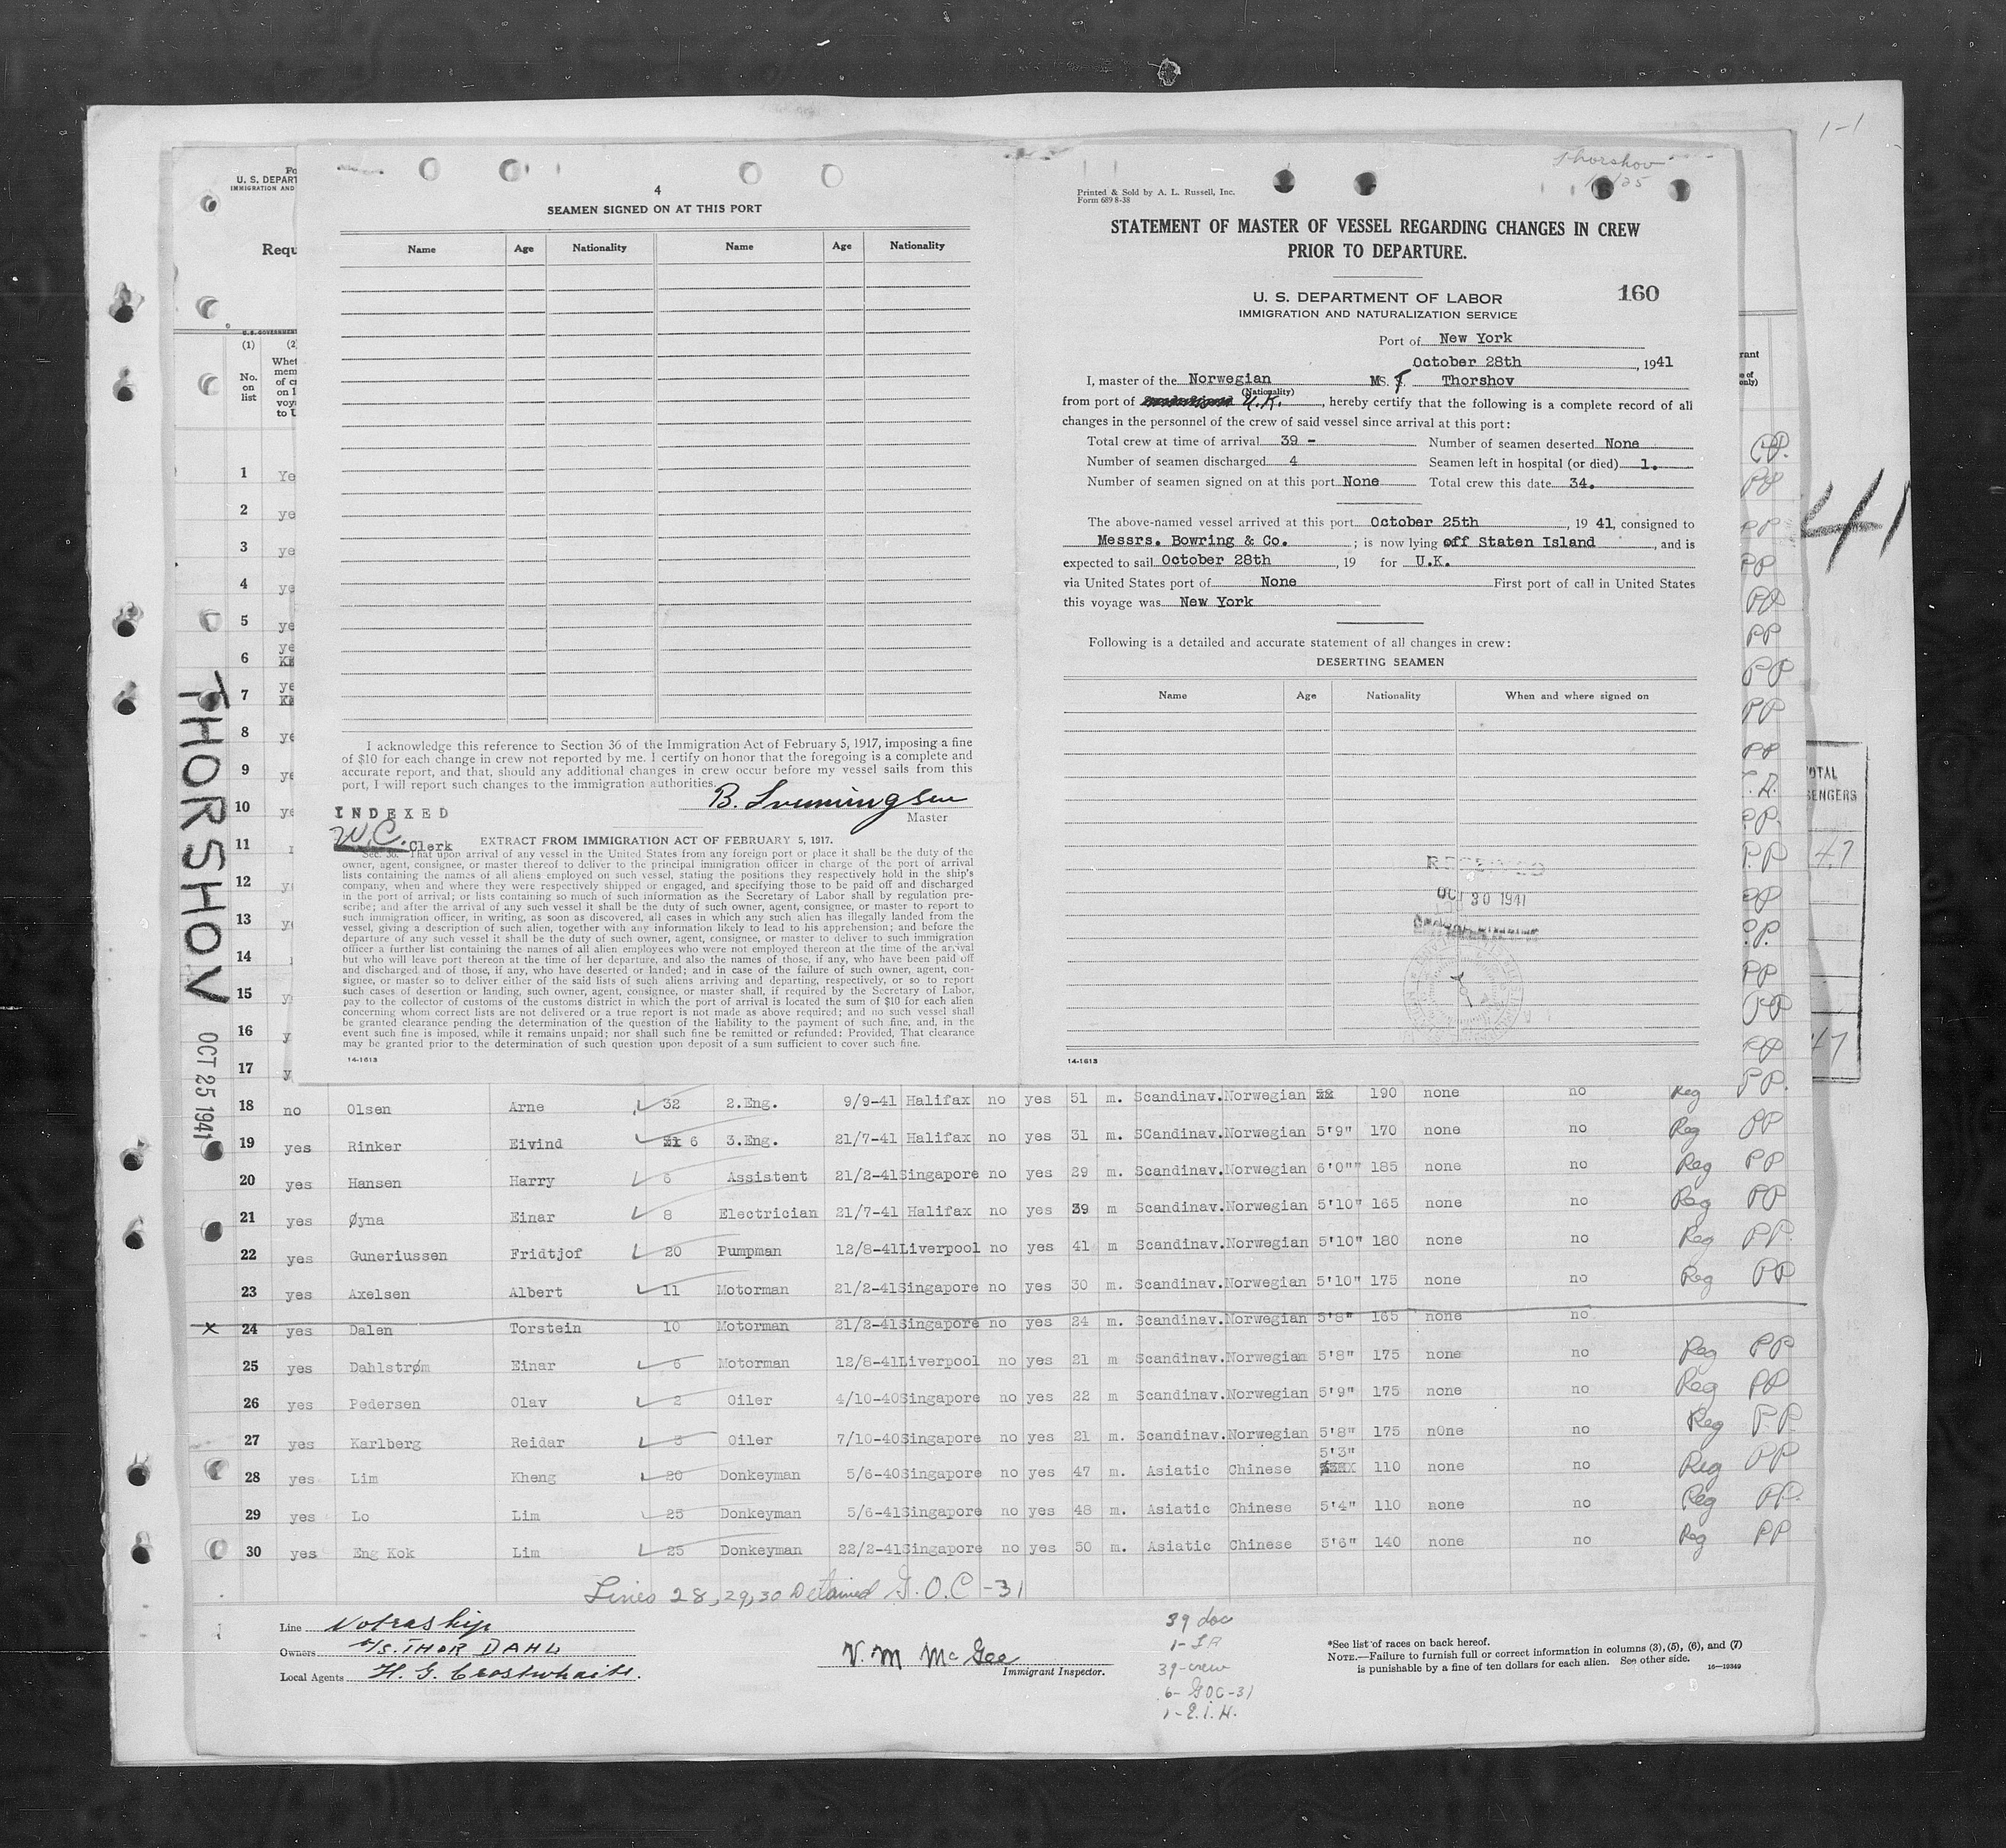 1-1
Thorshov
4
SEAMEN SIGNED ON AT THIS PORT
Name Age Nationality Name Age Nationality
I acknowledge this reference to Section 36 of the Immigration Act of February 5, 1917, imposing a fine
of $10 for each change in crew not reported by me. I certify on honor that the foregoing is a complete and
accurate report, and that, should any additional changes in crew occur before my vessel sails from this
port, I will report such changes to the immigration authorities.
B.
Master
INDEXED
W.C. Clerk
EXTRACT FROM IMMIGRATION ACT OF FEBRUARY 5, 1917.
Sec. 36. That upon arrival of any vessel in the United States from any foreign port or place it shall be the duty of the
owner, agent, consignee, or master thereof to deliver to the principal immigration officer in charge of the port of arrival
lists containing the names of all aliens employed on such vessel, stating the positions they respectively hold in the ship's
company, when and where they were respectively shipped or engaged, and specifying those to be paid off and discharged
in the port of arrival; or lists containing so much of such information as the Secretary of Labor shall by regulation pre-
scribe; and after the arrival of any such vessel it shall be the duty of such owner, agent, consignee, or master to report to
such immigration officer, in writing, as soon as discovered, all cases in which any such alien has illegally landed from the
vessel, giving a description of such alien, together with any information likely to lead to his apprehension; and before the
departure of any such vessel it shall be the duty of such owner, agent, consignee, or master to deliver to such immigration
officer a further list containing the names of all alien employees who were not employed thereon at the time of the arrival
but who will leave port thereon at the time of her departure, and also the names of those, if any, who have been paid off
and discharged and of those, if any, who have deserted or landed; and in case of the failure of such owner, agent, con-
signee, or master so to deliver either of the said lists of such aliens arriving and departing, respectively, or so to report
such cases of desertion or landing, such owner, agent, consignee, or master shall, if required by the Secretary of Labor,
pay to the collector of customs of the customs district in which the port of arrival is located the sum of $10 for each alien
concerning whom correct lists are not delivered or a true report is not made as above required; and no such vessel shall
be granted clearance pending the determination of the question of the liability to the payment of such fine, and, in the
event such fine is imposed, while it remains unpaid; nor shall such fine be remitted or refunded: Provided, That clearance
may be granted prior to the determination of such question upon deposit of a sum sufficient to cover such fine.
14-1613
Printed & Sold by A. L. Russell, Inc.
Form 689 8-38
STATEMENT OF MASTER OF VESSEL REGARDING CHANGES IN CREW
PRIOR TO DEPARTURE.
160
U. S. DEPARTMENT OF LABOR
IMMIGRATION AND NATURALIZATION SERVICE
Port of New York
October 28th, 1941
I, master of the Norwegian MS. Thorshov
(Nationality)
from port of U.K., hereby certify that the following is a complete record of all
changes in the personnel of the crew of said vessel since arrival at this port:
Total crew at time of arrival 39 - Number of seamen deserted None
Number of seamen discharged 4 Seamen left in hospital (or died) 1.
Number of seamen signed on at this port None Total crew this date 34.
The above-named vessel arrived at this port October 25th, 19 41, consigned to
Messrs. Bowring & Co. ; is now lying off Staten Island, and is
expected to sail October 28th, 19 for U.K.
via United States port of None First port of call in United States
this voyage was New York
Following is a detailed and accurate statement of all changes in crew:
DESERTING SEAMEN
Name Age Nationality When and where signed on
RECEIVED
OCT 30 1941
14-1613
U. S. DEPART
IMMIGRATION AND
Requ
(1) (2)
No. on list
Whet
mem
of c
on l
voy
to U
1 Ye
2 ye
3 ye
4 ye
5 ye
6 ye
7 ye
8 ye
9 ye
10 ye
11
12 y
13 y
14
15 y
16 y
17 y
THORSHOV
OCT 25 1941
41
OTAL
ENGERS
47
47
18 no Olsen Arne 32 2.Eng. 9/9-41 Halifax no yes 51 m. Scandinav. Norwegian 190 none no Reg PP.
19 yes Rinker Eivind 6 3.Eng. 21/7-41 Halifax no yes 31 m. SCandinav. Norwegian 5'9" 170 none no Reg PP
20 yes Hansen Harry 6 Assistent 21/2-41 Singapore no yes 29 m. Scandinav. Norwegian 6'0"" 185 none no Reg PP
21 yes Øyna Einar 8 Electrician 21/7-41 Halifax no yes 39 m Scandinav. Norwegian 5'10" 165 none no Reg PP
22 yes Guneriussen Fridtjof 20 Pumpman 12/8-41 Liverpool no yes 41 m Scandinav. Norwegian 5'10" 180 none no Reg PP.
23 yes Axelsen Albert 11 Motorman 21/2-41 Singapore no yes 30 m. Scandinav. Norwegian 5'10" 175 none no Reg PP
x 24 yes Dalen Torstein 10 Motorman 21/2-41 Singapore no yes 24 m. Scandinav. Norwegian 5'8" 165 none no
25 yes Dahlstrøm Einar 6 Motorman 12/8-41 Liverpool no yes 21 m Scandinav. Norwegian 5'8" 175 none no Reg PP
26 yes Pedersen Olav 2 Oiler 4/10-40 Singapore no yes 22 m Scandinav. Norwegian 5'9" 175 none no Reg PP
27 yes Karlberg Reidar 3 Oiler 7/10-40 Singapore no yes 21 m. Scandinav. Norwegian 5'8" 175 nOne no Reg P.P.
28 yes Lim Kheng 20 Donkeyman 5/6-40 Singapore no yes 47 m. Asiatic Chinese 5'3" 110 none no Reg PP
29 yes Lo Lim 25 Donkeyman 5/6-41 Singapore no yes 48 m. Asiatic Chinese 5'4" 110 none no Reg PP.
30 yes Eng Kok Lim 25 Donkeyman 22/2-41 Singapore no yes 50 m. Asiatic Chinese 5'6" 140 none no Reg PP
Lines 28, 29, 30 Detained G.O.C -31
Line Notraship
Owners A/S. THOR DAHL
Local Agents H. G. Crostwhaite.
V. M McGee
Immigrant Inspector.
39 doc
39-crew
6- GOC-31
1- E.I.H.
*See list of races on back hereof.
NOTE.—Failure to furnish full or correct information in columns (3), (5), (6), and (7)
is punishable by a fine of ten dollars for each alien. See other side.
16-19349